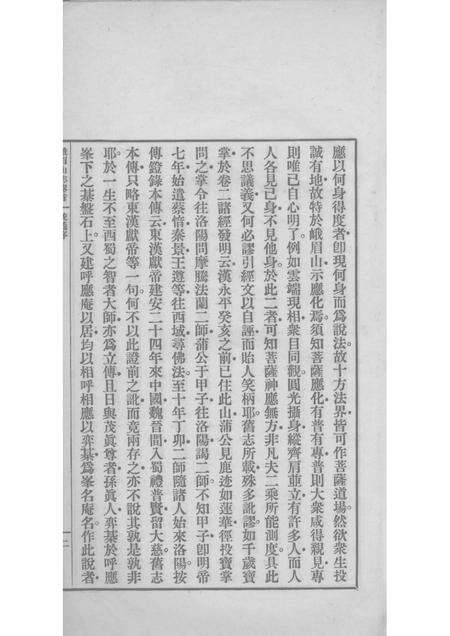 應以何身得度者卽現何身而爲說法。故十方法界皆可作菩薩道場。然欲衆生投
誠有地。故特於峨眉山示應化焉。須知菩薩應化有普有專。普則大衆咸得親見。專
則唯己自心明了。例如雲端現相。衆目同觀。圓光攝身。縱齊肩並立。有許多人。而人
人各見己身。不見他身。於此二者。可知菩薩神應無方。非凡夫二乘所能測度。具此
不思議義。又何必謬引經文以自誣。而貽人笑柄耶。舊志所載。殊多訛謬。如千歲寶
掌於卷二諸經發明云。漢永平癸亥之前已住此山。蒲公見鹿迹如蓮華。徑投寶掌
問之。掌令往洛陽問摩騰法蘭二師。蒲公于甲子往洛陽謁二師。不知甲子卽明帝
七年。始遣蔡愔秦景王遵等往西域尋佛法。至十年丁卯。二師隨諸人始來洛陽。按
傳燈錄本傳云。東漢獻帝建安二十四年來中國。魏晉間入蜀禮普賢。留大慈。舊志
本傳只略東漢獻帝等一句。何不以此證前之訛。而竟兩存之。亦不說其孰是孰非
耶。於一生不至西蜀之智者大師。亦爲立傳。且日與茂眞尊者孫眞人弈棋於呼應
峯下之棋盤石上。又建呼應庵以居。均以相呼相應以弈棊爲峯名庵名。作此說者。